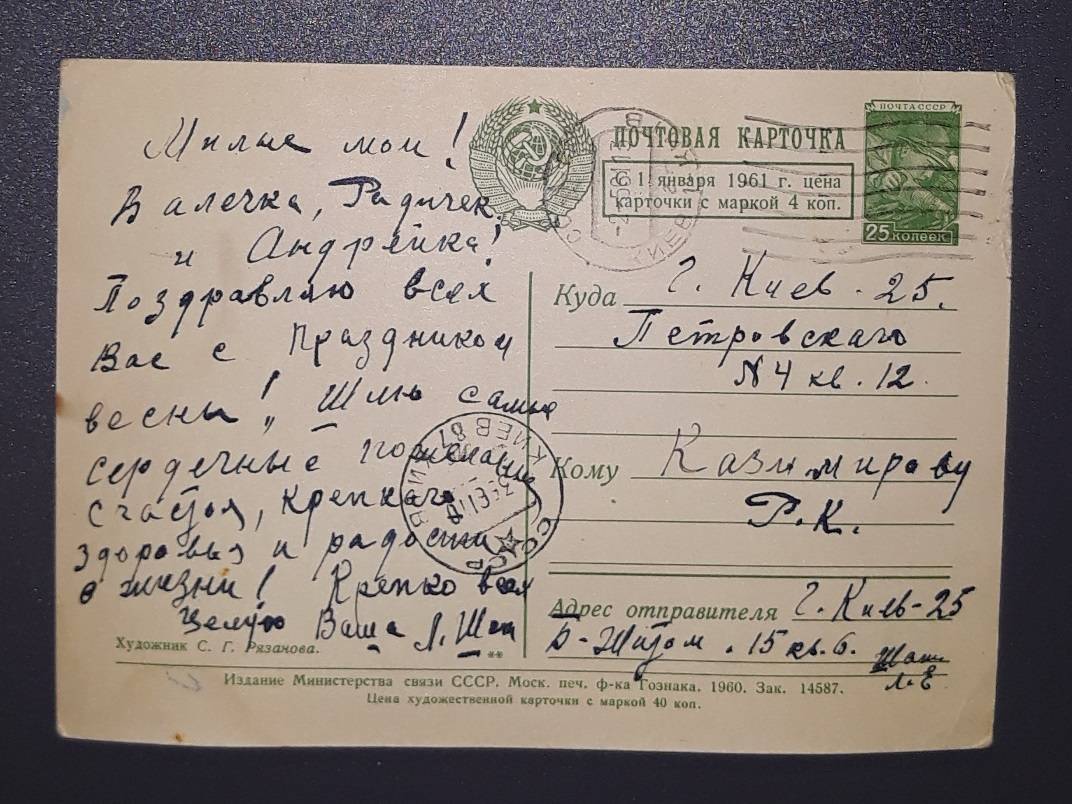 Милые мои!
Валечка, Радичек
и Андрейка!
Поздравляю всех
Вас с Праздником
весны! Шлю самые
сердечные пожелания
счастья, крепкого
здоровья и радости
в жизни! Крепко всех
Целую Ваша Л. Шап
Художник С. Г. Рязанова.
**
ПОЧТОВАЯ КАРТОЧКА
С 1 января 1961 г. цена
карточки с маркой 4 коп.
ПОЧТА СССР
25 КОПЕЕК
КИЕВ
Куда г. Киев - 25.
Петровскаго
N 4 кв. 12.
Кому Казимирову
Р. К.
КИЕВ 87
СССР
Адрес отправителя г. Киев-25
Б-Житом. 15 кв. 6.
Л. Е
Издание Министерства связи СССР. Моск. печ. ф-ка Гознака. 1960. Зак. 14587.
Цена художественной карточки с маркой 40 коп.